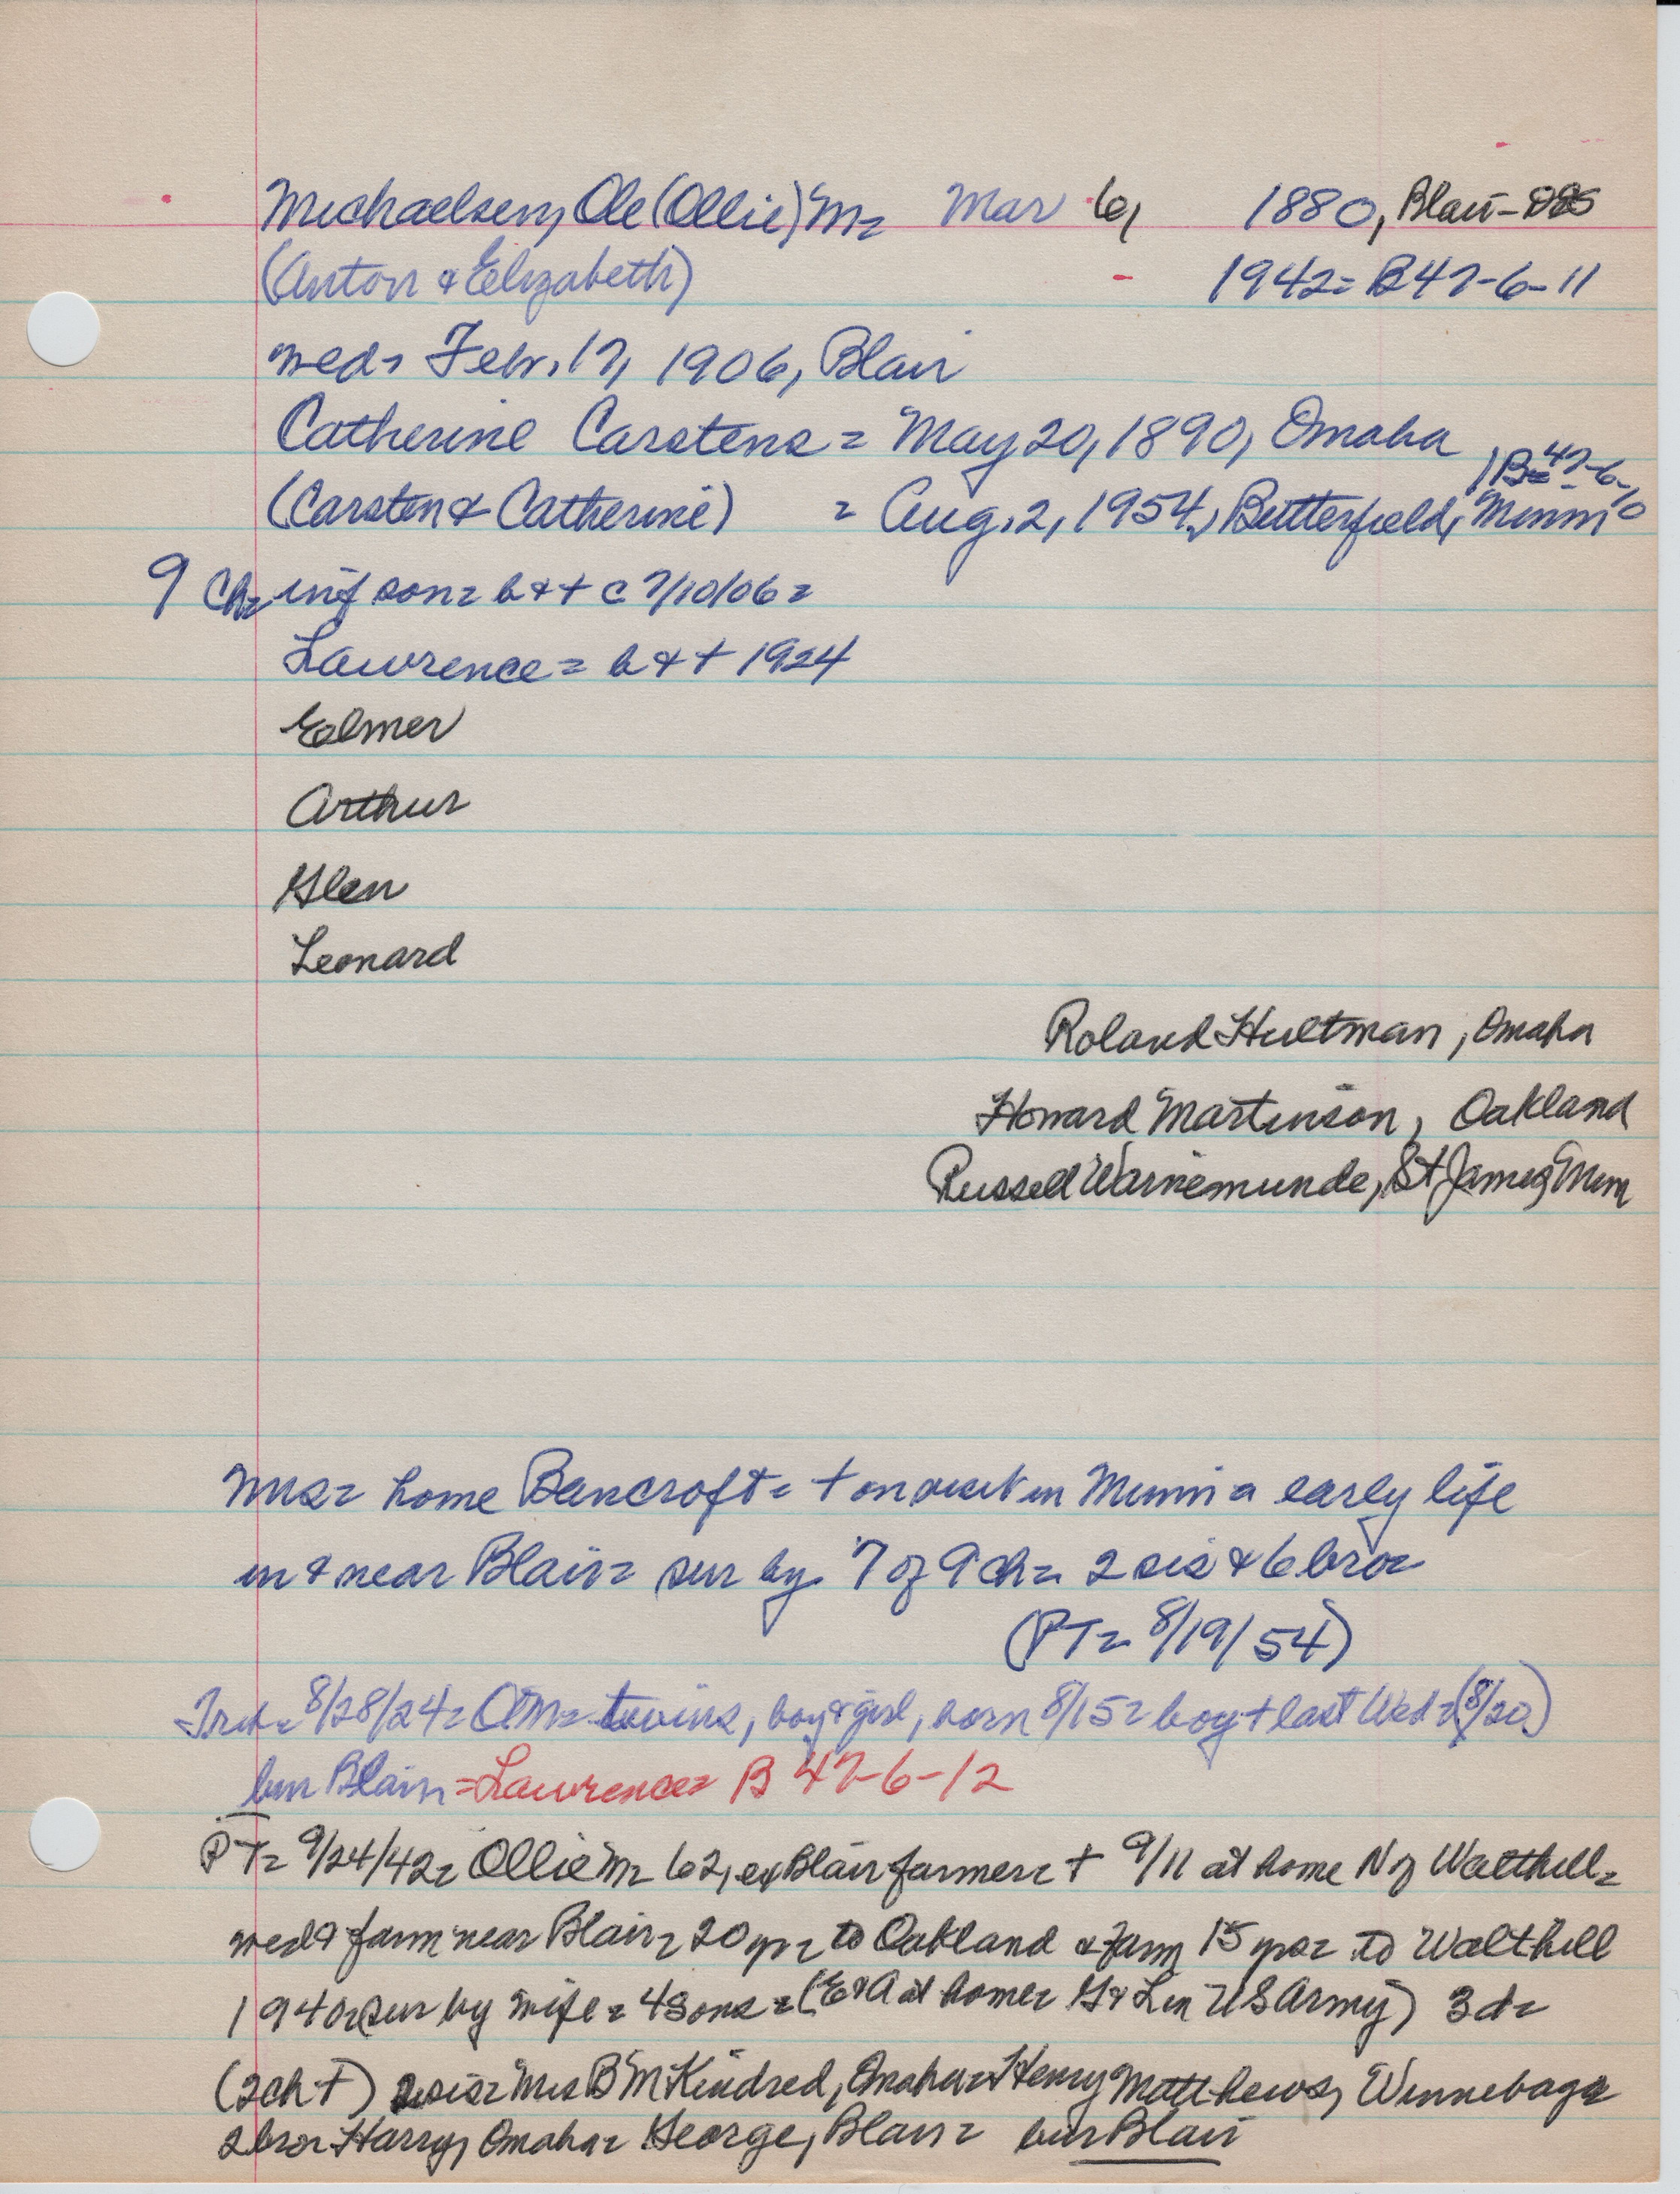 Michaelsen, Ole (Ollie) M= Mar 6, 1880, Blair-
(Anton & Elizabeth) - 1942= B47-6-11
wed= Febr. 17, 1906, Blair
Catherine Carstens = May 20, 1890, Omaha
(Carsten & Catherine) = Aug. 2, 1954, Butterfield, Minn | B=47-6-10
9 Ch= inf son= b & + c 7/10/06=
Lawrence = b & + 1924
Elmer
Arthur
Glen
Leonard
Roland Hultman, Omaha
Howard Martinson, Oakland
Russell Warnemunde, St James Minn
Mrs= home Bancroft= + on visit in Minn= early life
in & near Blair= sur by 7 of 9 ch= 2 sis & 6 bro=
(PT= 8/19/54)
8/28/24= OM= twins, boy & girl, born 8/15= boy + last Wed= (8/20)
bur Blair =Lawrence= B 47-6-12
PT= 9/24/42= Ollie M= 62, ex Blair farmer= + 9/11 at home N of Walthill=
wed & farm near Blair= 20 yr= to Oakland & farm 15 yrs= to Walthill
1940= sur by wife= 4 sons= (E & A at home= G & L in US Army) 3 d=
(2 ch +) 2 sis= Mrs B M Kindred, Omaha= Henry Matthews, Winnebago
2 bro= Harry, Omaha= George, Blair= bur Blair